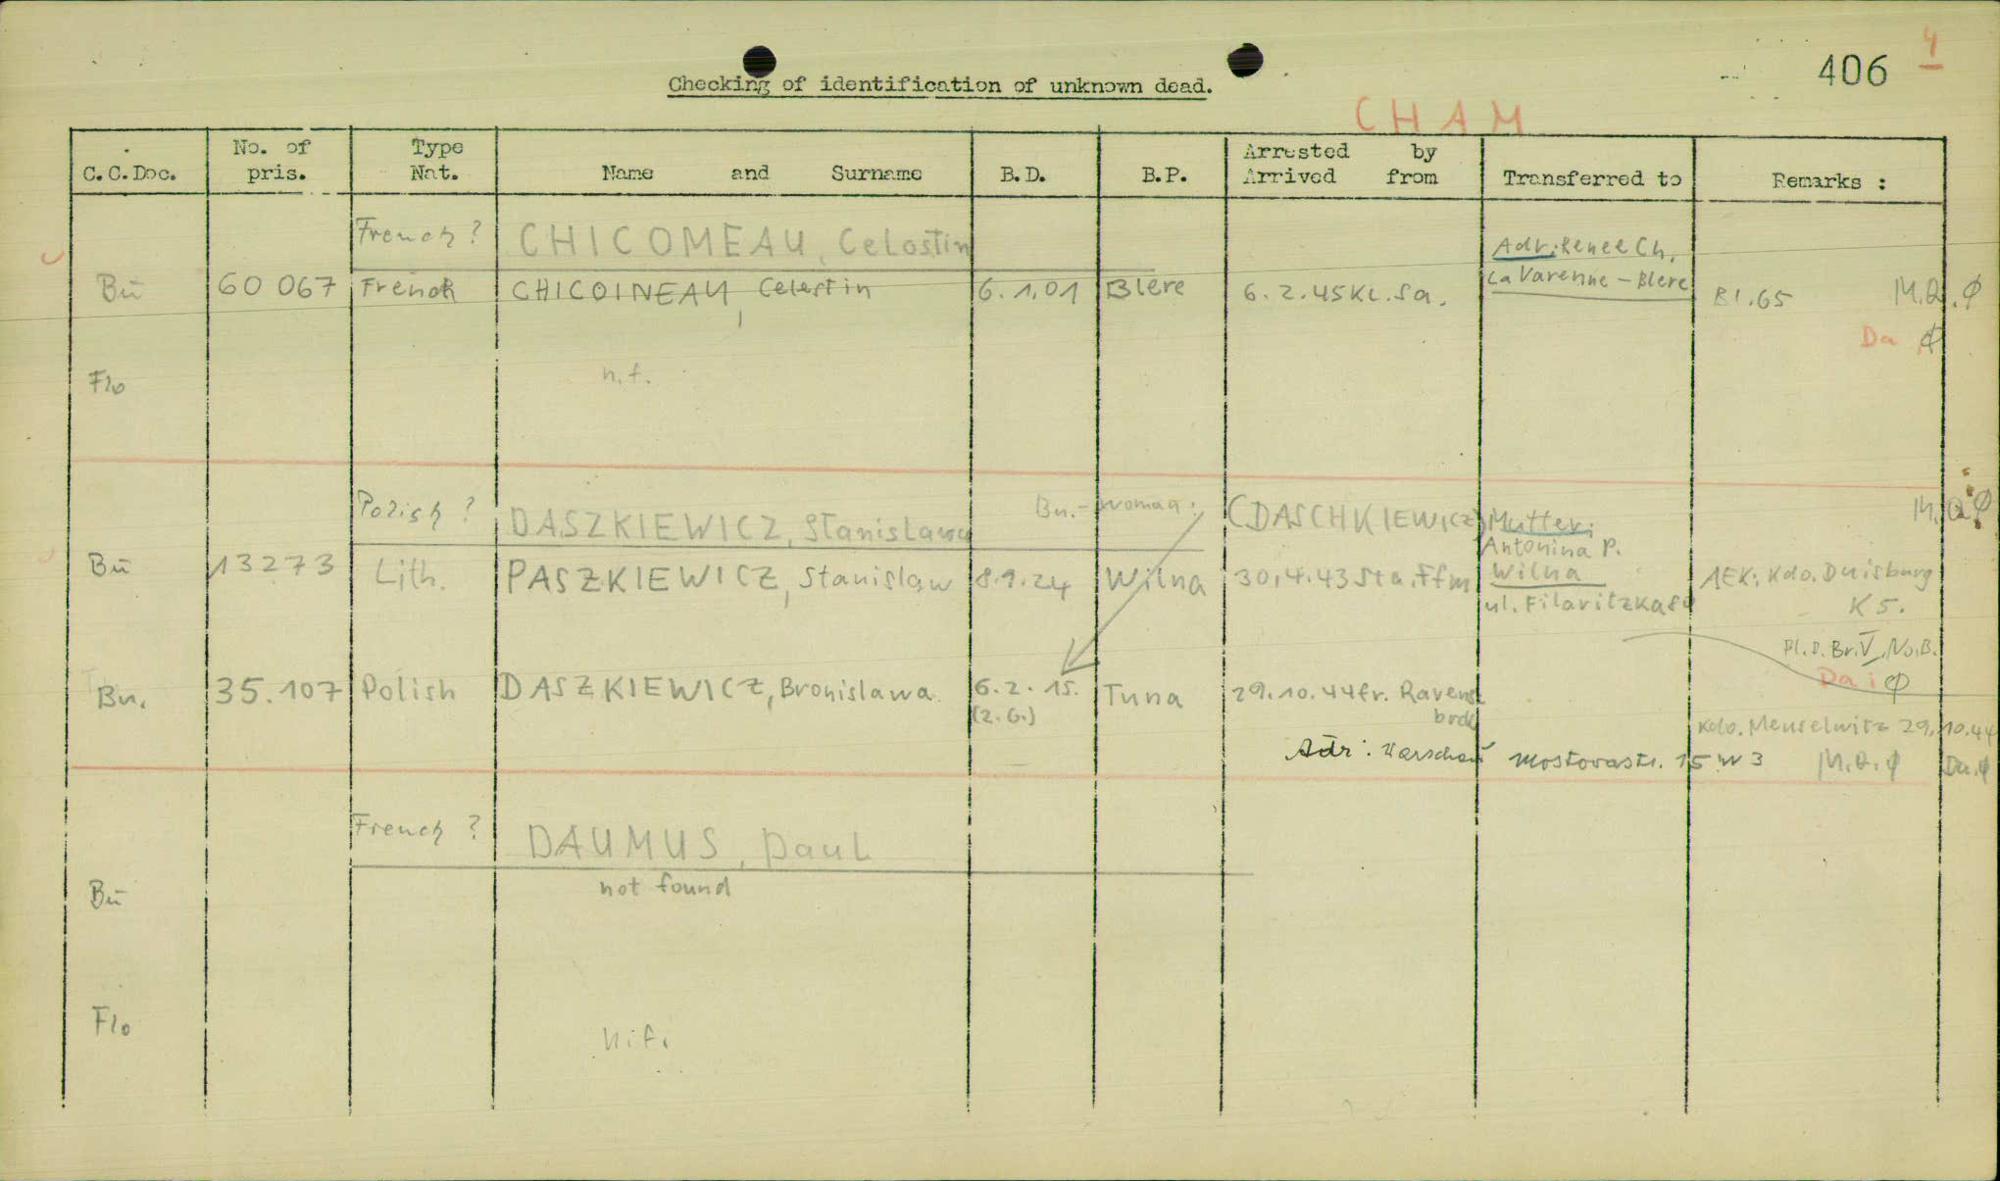 406 4
Checking of identification of unknown dead.
CHAM
C.C.Doc. No. of pris. Type Nat. Name and Surname B.D. B.P. Arrested by Arrived from Transferred to Remarks :
French ? CHICOMEAU, Celostin
Adr: Renee Ch.
La Varenne - Blere
Bū 60 067 French CHICOINEAU, Celestin 6.1.01 Blere 6.2.45 KL.Sa. Bl.65 M.Q.∅
Da ∅
Flo n.f.
Polish ? DASZKIEWICZ, Stanislawa Bu.-woman: (DASCHKIEWICZ) Mutter: M.Q.∅
Antonina P.
Bū 13273 Lith. PASZKIEWICZ, Stanislaw 8.9.24 Wilna 30.4.43 Sta.Ffm Wilna AEK; Kdo. Duisburg
ul. Filaritzka K 5.
Pl.D. Br.V, No.B.
Da: ∅
Bu. 35.107 Polish DASZKIEWICZ, Bronislawa 6.2.15. Tuna 29.10.44 fr. Ravens
(2.6.) brck
Kdo. Meuselwitz 29.10.44
Adr: Warschau Mostovastr. 15 W 3 M.Q.∅ Da.∅
French ? DAUMUS, Paul
Bū not found
Flo n.f.